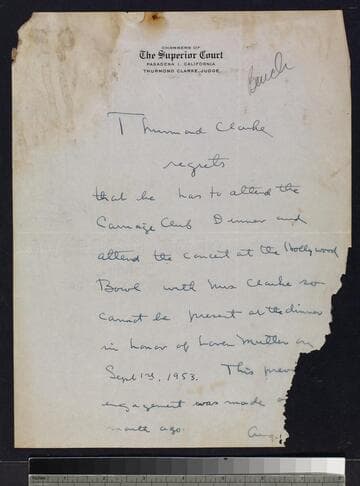 CHAMBERS OF
The Superior Court
PASADENA 1, CALIFORNIA
THURMOND CLARKE, JUDGE
Thurmond Clarke
regrets
that he has to attend the
Carriage Club Dinner and
attend the concert at the Hollywood
Bowl with Mrs Clarke so
cannot be present at the dinner
in honor of Loren Miller on
Sept 1st, 1953. This prev
engagement was made
month ago.
Aug